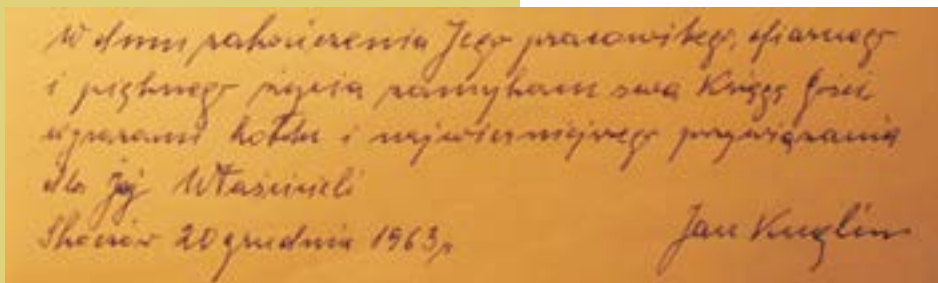 W dniu zakończenia Jego pracowitego, ofiarnego
i pięknego życia zamykam swą Księgę Gości
wyrazami hołdu i najwierniejszego przywiązania
dla Jej Właścicieli
Skoczów 20 grudnia 1963 r.
Jan Kuglin